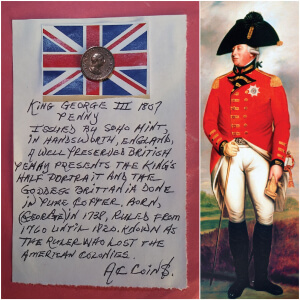 KING GEORGE III 1807
PENNY
ISSUED BY SOHO MINT,
IN HANDSWORTH, ENGLAND,
A WELL PRESERVED BRITISH
PENNY PRESENTS THE KING'S
HALF PORTRAIT AND THE
GODDESS BRITTANIA DONE
IN PURE COPPER. BORN,
(GEORGE) IN 1738, RULED FROM
1760 UNTIL 1820. KNOWN AS
THE RULER WHO LOST THE
AMERICAN COLONIES.
AC COIN$.